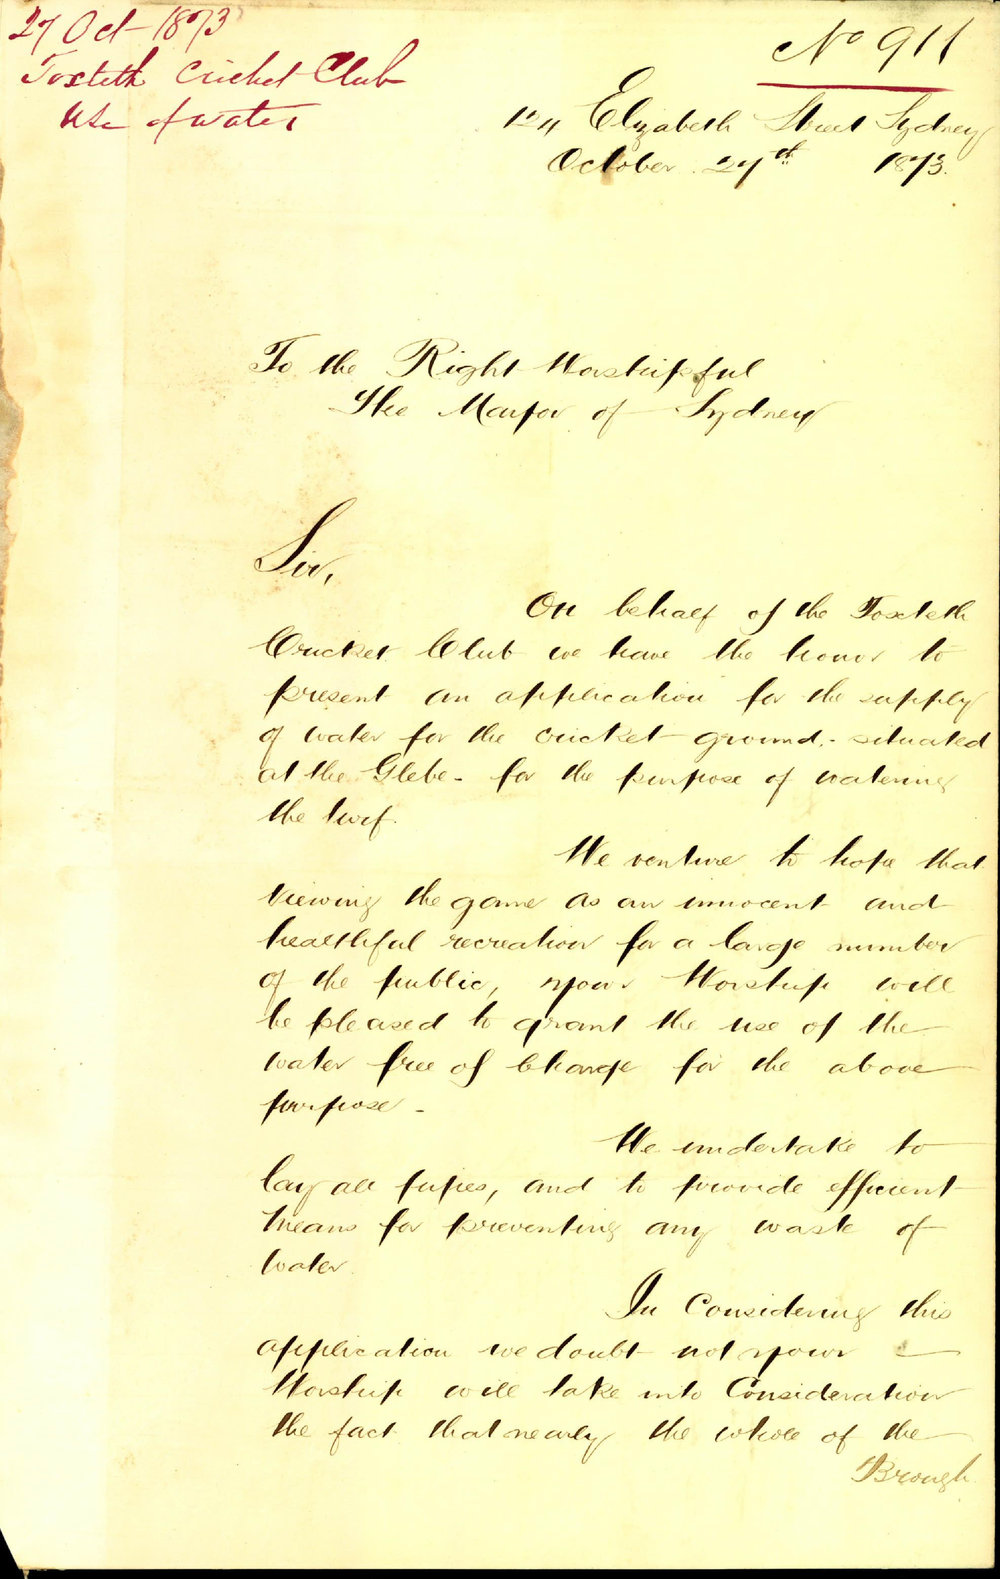 27 Oct - 1873
Toxteth Cricket Club
Use of water
No 911
124 Elizabeth Street Sydney
October 27th 1873.
To the Right Worshipful
The Mayor of Sydney
Sir,
On behalf of the Toxteth
Cricket Club we have the honor to
present an application for the supply
of water for the cricket ground, - situated
at the Glebe - for the purpose of watering
the turf.
We venture to hope that
viewing the game as an innocent and
healthful recreation for a large number
of the public, your Worship will
be pleased to grant the use of the
water free of Charge for the above
purpose -
We undertake to
lay all pipes, and to provide efficient
means for preventing any waste of
water.
In Considering this
application we doubt not your
Worship will take into Consideration
the fact that nearly the whole of the
Brough